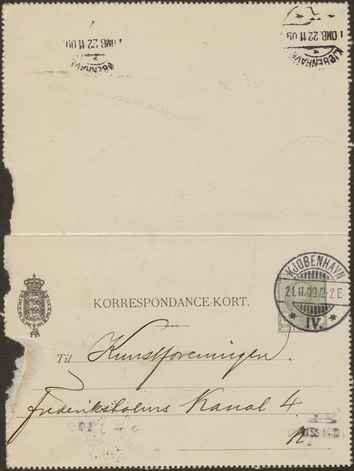 1 OMB. 22 11 09
KJØBENHAVN
1 OMB. 22 11 09
KJØBENHAVN
KJØBENHAVN
21.11.09. 2 E
IV.
KORRESPONDANCE-KORT.
Til Kunstforeningen.
Frederiksholms Kanal 4
K